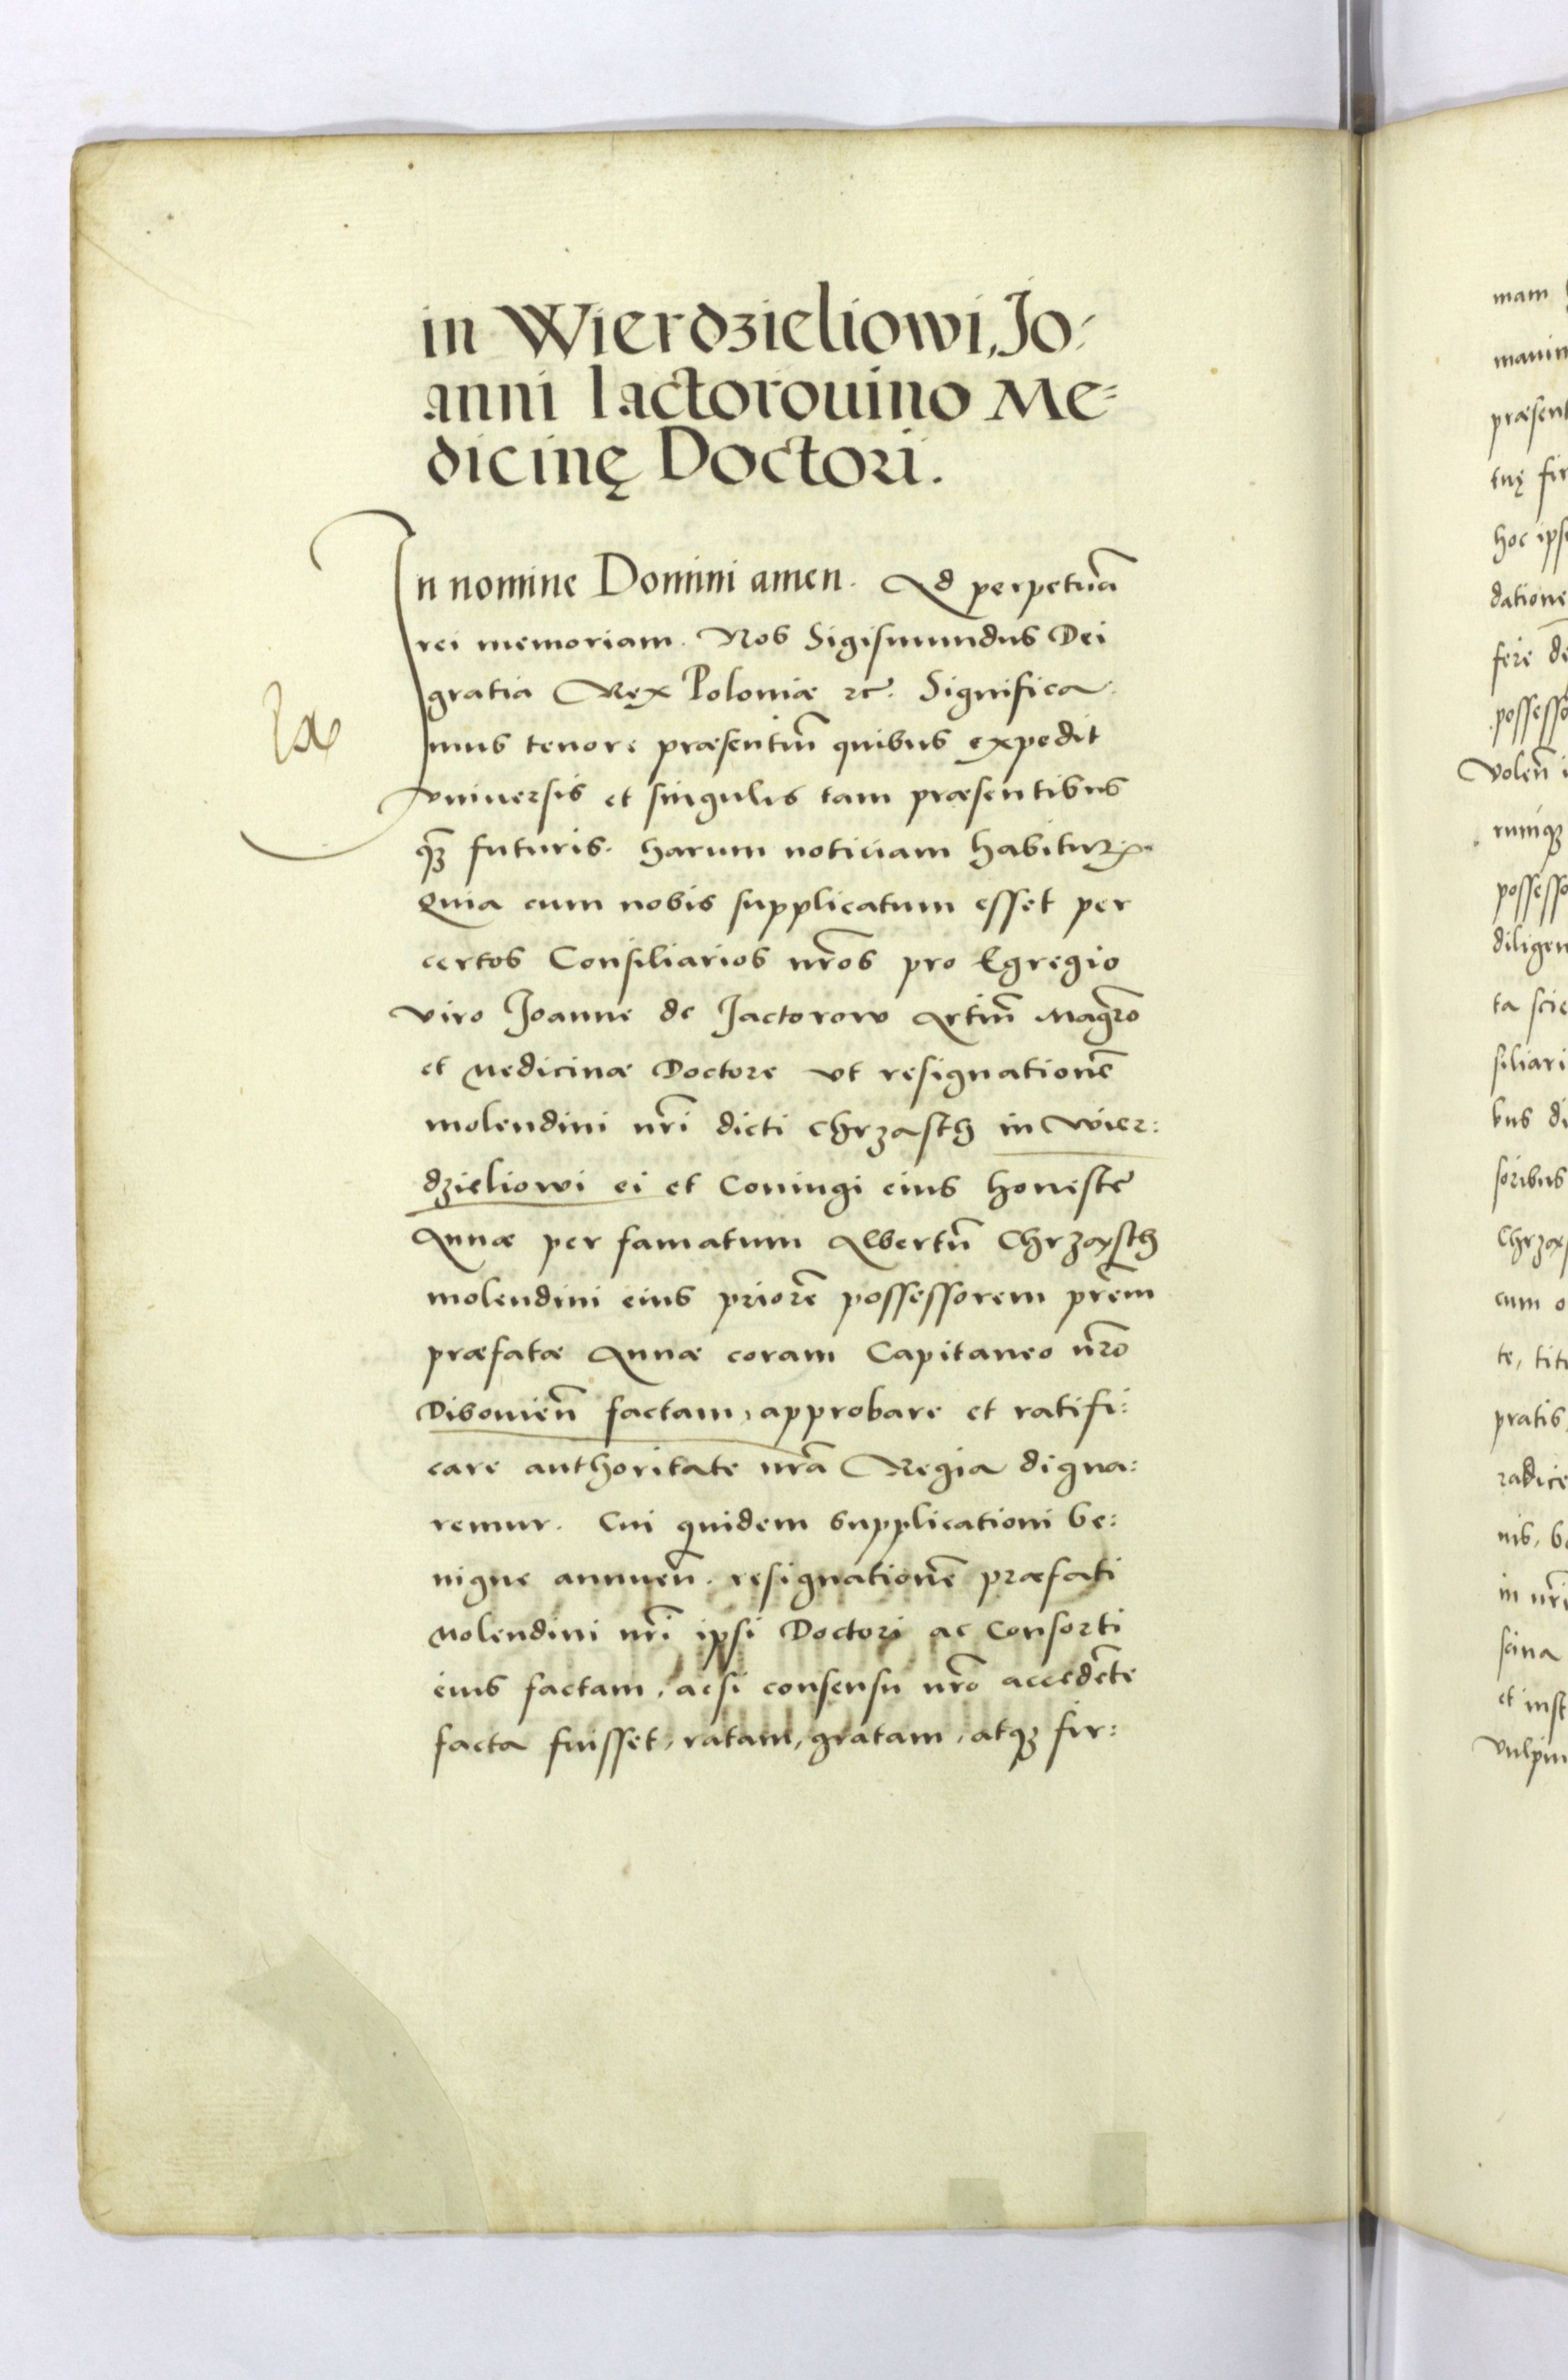 in Wierdzieliowi, Jo⸗
anni Iactorouino Me⸗
dicinę Doctori.
In nomine Domini amen. Ad perpetuā
rei memoriam. Nos Sigismundus Dei
gratia Rex Poloniæ ⁊c̃. Significa⸗
mus tenore præsentiũ quibus expedit
vniuersis et singulis tam præsentibus
qꝫ̃ futuris. harum noticiam habituꝝ.
Quia cum nobis supplicatum esset per
certos Consiliarios nr̃os pro Egregio
viro Joanne de Jactorow Artiũ Magr̃o
et Medicinæ Doctore vt resignationẽ
molendini nr̃i dicti chrzasch in Wier:
dzieliowi ei et Coniugi eius honestę
Annæ per famatum Albertũ Chrząsch
molendini eius priorẽ possessorem pr̃em
præfatæ Annæ coram Capitaneo nr̃o
Dibouieñ factam, approbare et ratifi:
care authoritate nr̃a Regia digna:
remur. Cui quidem supplicationi be:
nigne annueñ. resignationẽ præfati
Molendini nr̃i ipsi Doctori ac Consorti
eius factam, acsi consensu nr̃o accedẽte
facta fuisset, ratam, gratam, atqꝫ fir:
mam
præsent
tuę fir
hoc ips
datione
fere de
possesso
Voleñ i
rumqꝫ
possesso
diligen
ta scie
siliari
bus di
soribus
Chrząs
cum o
te, titu
pratis,
radice
nis, b
in nr̃i
scina
et inst